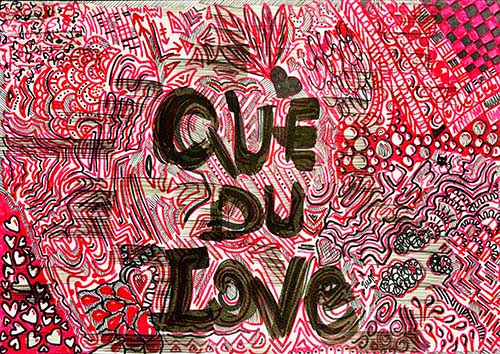 QUE
DU
LOVE